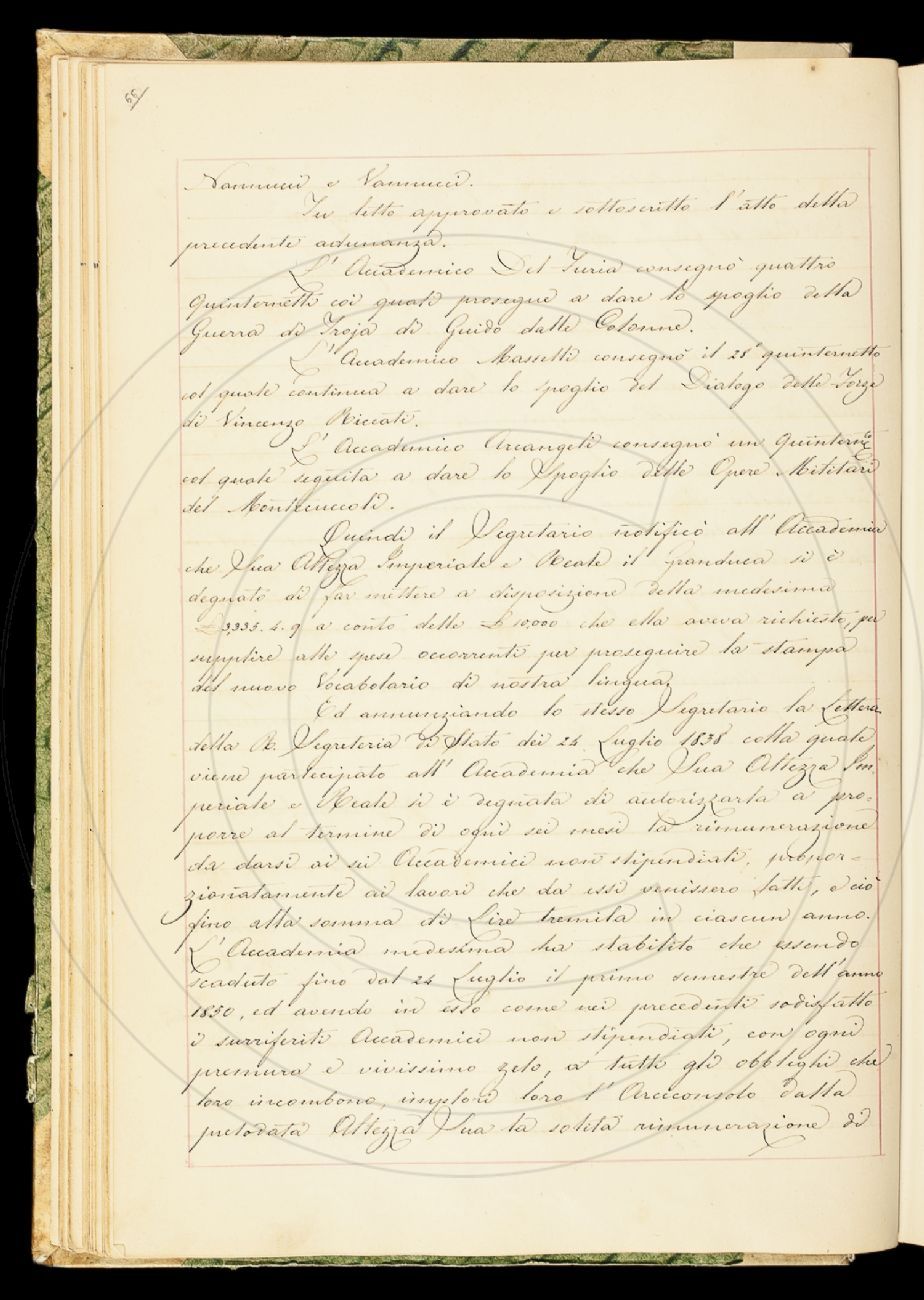 66
Nannucci e Vannucci.
Fu letto approvato e sottoscritto l'atto della
precedente adunanza.
L'Accademico Del Furia consegnò quattro
Quinternetti coi quali prosegue a dare lo spoglio della
Guerra di Troja di Guido dalle Colonne.
L'Accademico Masselli consegnò il 28° quinternetto
col quale continua a dare lo spoglio del Dialogo delle Forze
di Vincenzo Riccati.
L'Accademico Arcangeli consegnò un Quinternetto
col quale seguita a dare lo Spoglio delle Opere Militari
del Montecuccoli.
Quindi il Segretario notificò all'Accademia
che Sua Altezza Imperiale e Reale il Granduca si è
degnato di far mettere a disposizione della medesima
£ 3,333. 4. 9 a conto delle £ 10,000 che ella aveva richieste, per
supplire alle spese occorrenti per proseguire la stampa
del nuovo Vocabolario di nostra lingua.
Ed annunziando lo stesso Segretario la Lettera
della R. Segreteria di Stato dei 24 Luglio 1838 colla quale
viene partecipato all'Accademia che Sua Altezza Im-
periale e Reale si è degnata di autorizzarla a pro-
porre al termine di ogni sei mesi la rimunerazione
da darsi ai sei Accademici non stipendiati, propor-
zionatamente ai lavori che da essi venissero fatti, e ciò
fino alla somma di Lire tremila in ciascun anno.
L'Accademia medesima ha stabilito che essendo
scaduto fino dal 24 Luglio il primo semestre dell'anno
1850, ed avendo in esso come nei precedenti sodisfatto
i surriferiti Accademici non stipendiati, con ogni
premura e vivissimo zelo, a tutti gli obblighi che
loro incombono, implori loro l'Arciconsolo dalla
prelodata Altezza Sua la solita rimunerazione di